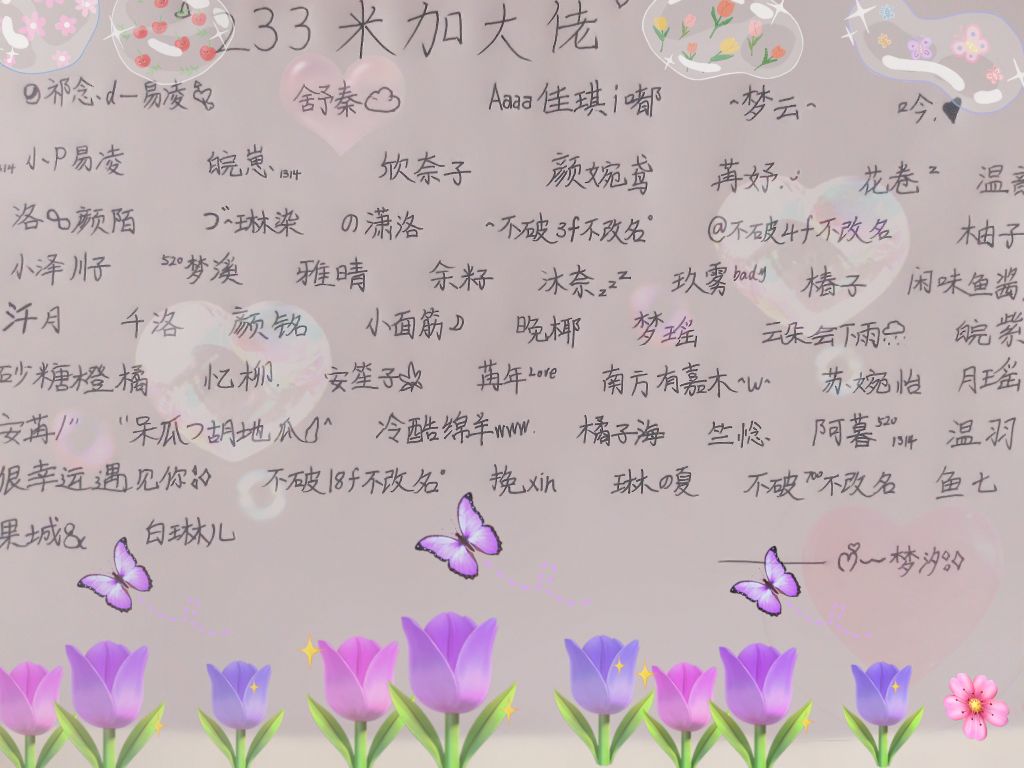 233米加大佬
祁念、d一易凌 舒秦 Aaaa佳琪i嘟 ~梦云~ 2吟.
1314 小P易凌 皖崽、1314 欤奈子 颜婉鸢 苒妤. 花卷² 温
洛 颜陌 づ~琳染 の潇洛 ~不破3f不改名° @不破4f不改名 柚子
小泽川子 520梦溪 雅晴 余籽 沐奈zzz 玖雾bady 椿子 闲味鱼酱
汘月 千洛 颜铭 小面筋 晚椰 梦瑶 云朵会下雨 皖紫
砂糖橙橘 忆柳. 安笙子 苒年Love 南方有嘉木~w~ 苏婉怡 月瑶
安苒 "呆瓜つ胡地瓜 冷酷绵羊www. 橘子海 竺惗、 阿暮520 1314 温羽
很幸运遇见你 不破18f不改名° 挽xin 琳の夏 不破70f不改名 鱼七
果城& 白琳儿
—— 梦汐